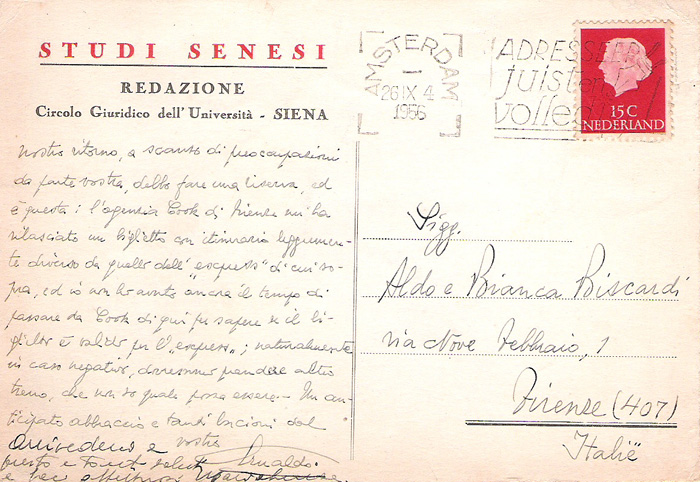 STUDI SENESI
REDAZIONE
Circolo Giuridico dell'Università - SIENA
nostro ritorno, a scanso di preoccupazioni
da parte vostra, debbo fare una riserva, ed
è questa: l'agenzia Cook di Firenze mi ha
rilasciato un biglietto con itinerario leggermen-
te diverso da quello dell' "espresso" di cui so-
pra, ed io non ho avuto ancora il tempo di
passare da Cook di qui per sapere se il bi-
glietto è valido per l' "espresso"; naturalmente
in caso negativo, dovremmo prendere altro
treno, che non so quale possa essere. Un an-
ticipato abbraccio e tanti bacioni dal
vostro
Arnaldo.
Arrivederci a
presto e tanti saluti
AMSTERDAM
26 IX 4
1956
ADRESSEER
juist en
volledig
15 C
NEDERLAND
Sigg.
Aldo e Bianca Biscardi
via Nove Febbraio, 1
Firenze (407)
Italië